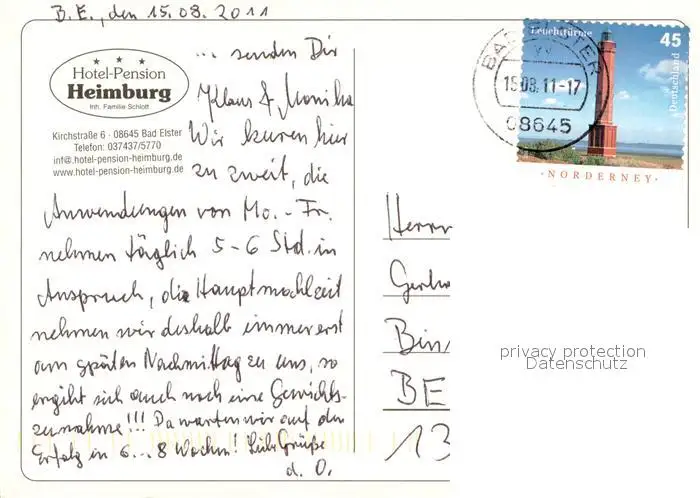 B.E., den 15.08.2011
... senden Dir
Klaus & Monika
Hotel-Pension
Heimburg
Inh. Familie Schlott
Kirchstraße 6 · 08645 Bad Elster
Telefon: 037437/5770
inf@.hotel-pension-heimburg.de
www.hotel-pension-heimburg.de
Wir kuren hier
zu zweit, die
Anwendungen von Mo. - Fr.
nehmen täglich 5-6 Std. in
Anspruch, die Hauptmahlzeit
nehmen wir deshalb immer erst
am späten Nachmittag zu uns, so
ergibt sich auch noch eine Gewichts-
zunahme!!! Da warten wir auf den
Erfolg in 6...8 Wochen! Liebe Grüße
d. O.
Leuchttürme
45
Deutschland
NORDERNEY
BAD ELSTER
15.08.11-17
08645
Herrn
Gerha
Bin
BE
13
privacy protection
Datenschutz